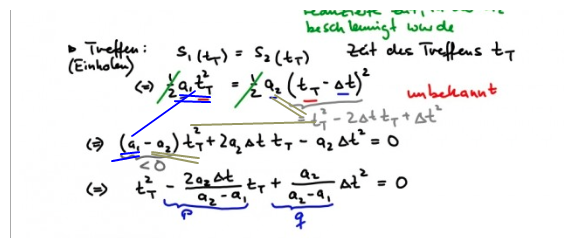 beschleunigt wurde
▸ Treffen: S₁(t_T) = S₂(t_T) Zeit des Treffens t_T
(Einholen)
(⇒) ½ a₁ t_T² = ½ a₂ (t_T - Δt)² unbekannt
= t_T² - 2Δt t_T + Δt²
(⇒) (a₁ - a₂) t_T² + 2a₂ Δt t_T - a₂ Δt² = 0
< 0
(⇒) t_T² - 2a₂Δt/(a₂ - a₁) t_T + a₂/(a₂ - a₁) Δt² = 0
p q